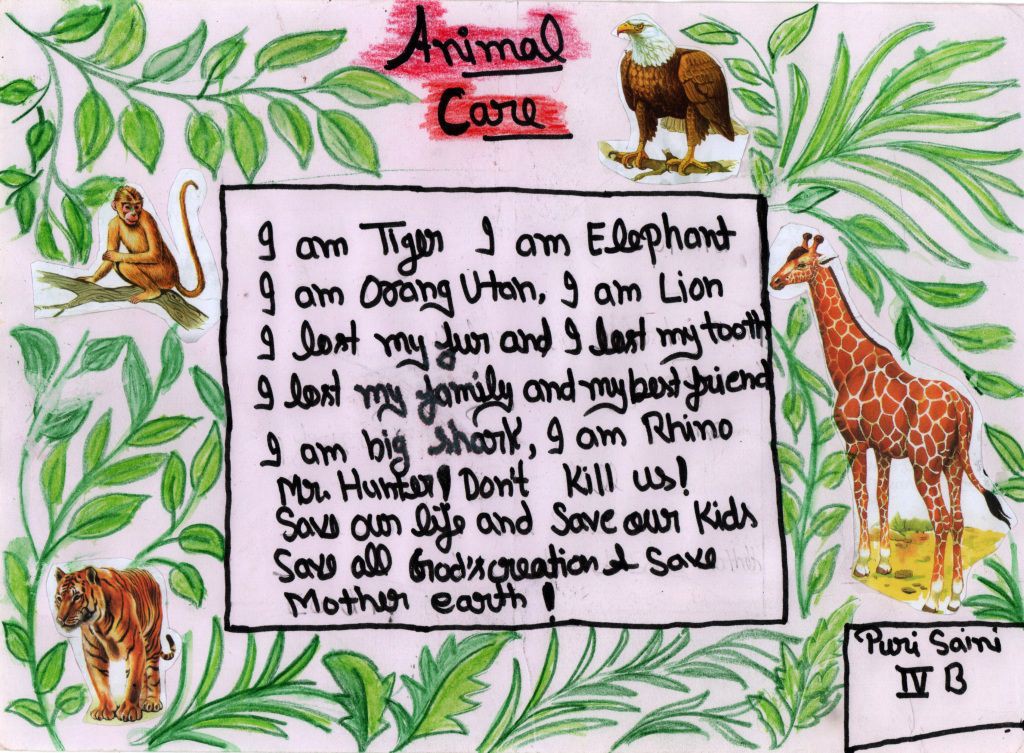 Animal
Care
I am Tiger I am Elephant
I am Orang Utan, I am Lion
I lost my fur and I lost my tooth
I lost my family and my best friend
I am big shark, I am Rhino
Mr. Hunter! Don't Kill us!
Save our life and Save our Kids
Save all God's creation & Save
Mother earth!
Puri Saini
IV B